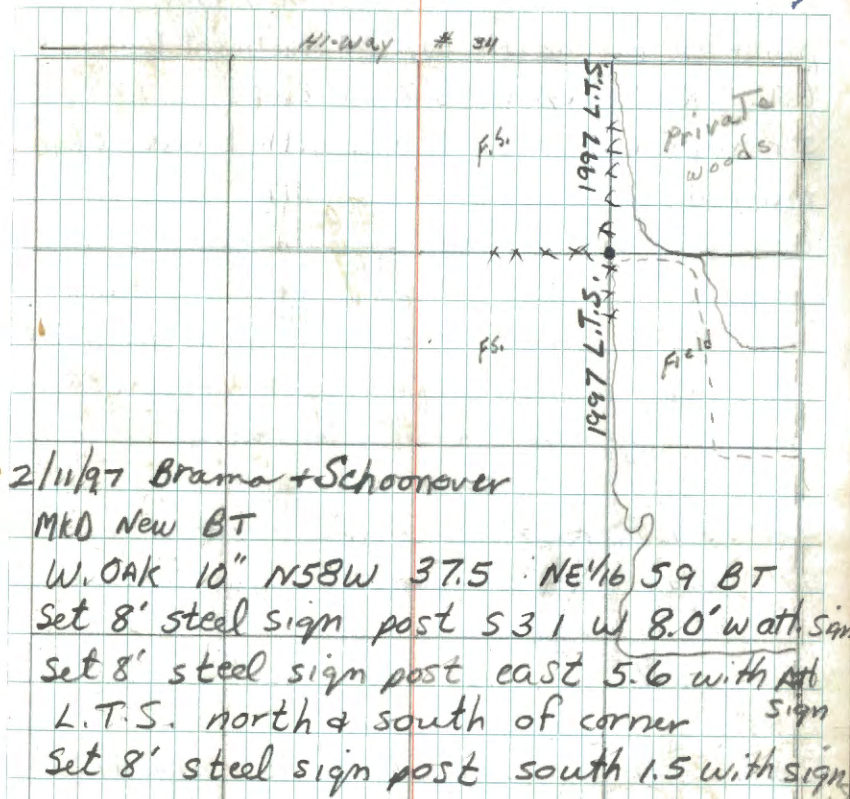 Hi-way # 34
1997 L.T.S.
private
woods
F.S.
1997 L.T.S.
FS.
Field
2/11/97 Brama + Schoonover
MKD New BT
W. OAK 10" N58W 37.5 NE 1/16 S9 BT
Set 8' steel sign post S 31 W 8.0' w att. sign
Set 8' steel sign post east 5.6 with Att
sign
L.T.S. north & south of corner
Set 8' steel sign post south 1.5 with sign